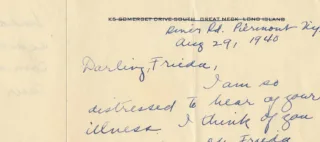 KS SOMERSET DRIVE SOUTH GREAT NECK LONG ISLAND
Rd. Piermont Ny.
Aug 29, 1940
Darling, Frieda,
I am so
distressed to hear of your
illness. I think of you
Frieda